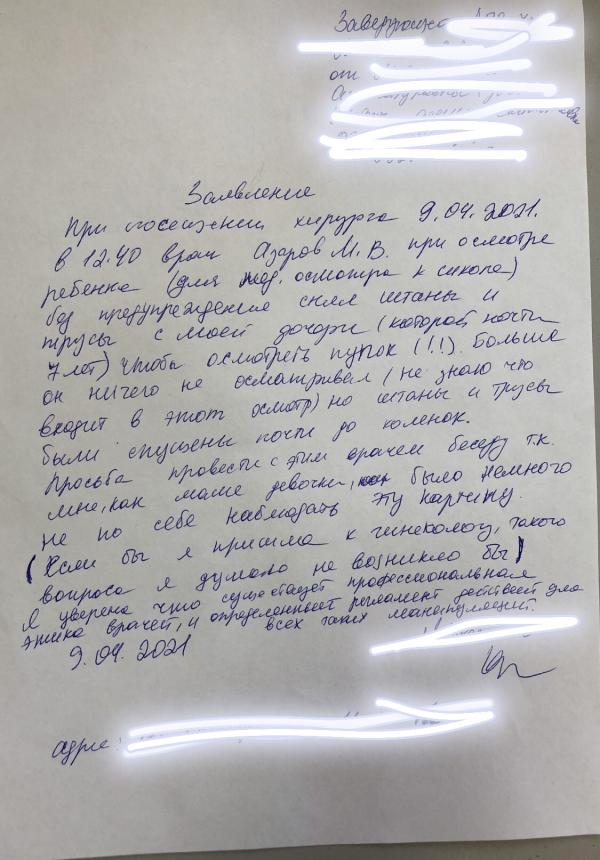 Заведующе
от
Заявление
При посещении хирурга 9.04.2021.
в 12.40 врач Азаров М.В. при осмотре
ребенка (для мед. осмотра к школе)
без предупреждения снял штаны и
трусы с моей дочери (которой почти
7 лет) чтобы осмотреть пупок (!!). Больше
он ничего не осматривал (не знаю что
входит в этот осмотр) но штаны и трусы
были спущены почти до коленок.
Просьба провести с этим врачем беседу т.к.
мне, как маме девочки, было немного
не по себе наблюдать эту картину.
(Если бы я пришла к гинекологу, такого
вопроса я думаю не возникло бы)
Я уверена что существует профессиональная
этика врачей, и определенный регламент действий для
всех таких манипуляций.
9.04.2021
адрес: